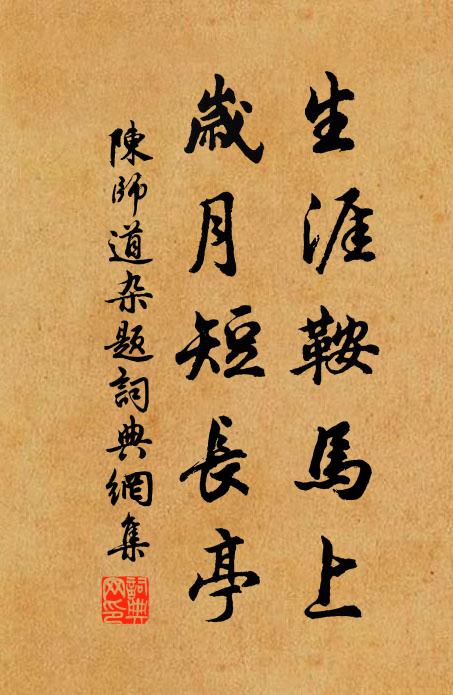 生涯鞍馬上
歲月短長亭
陳師道杂題詞典網集
詞典网印